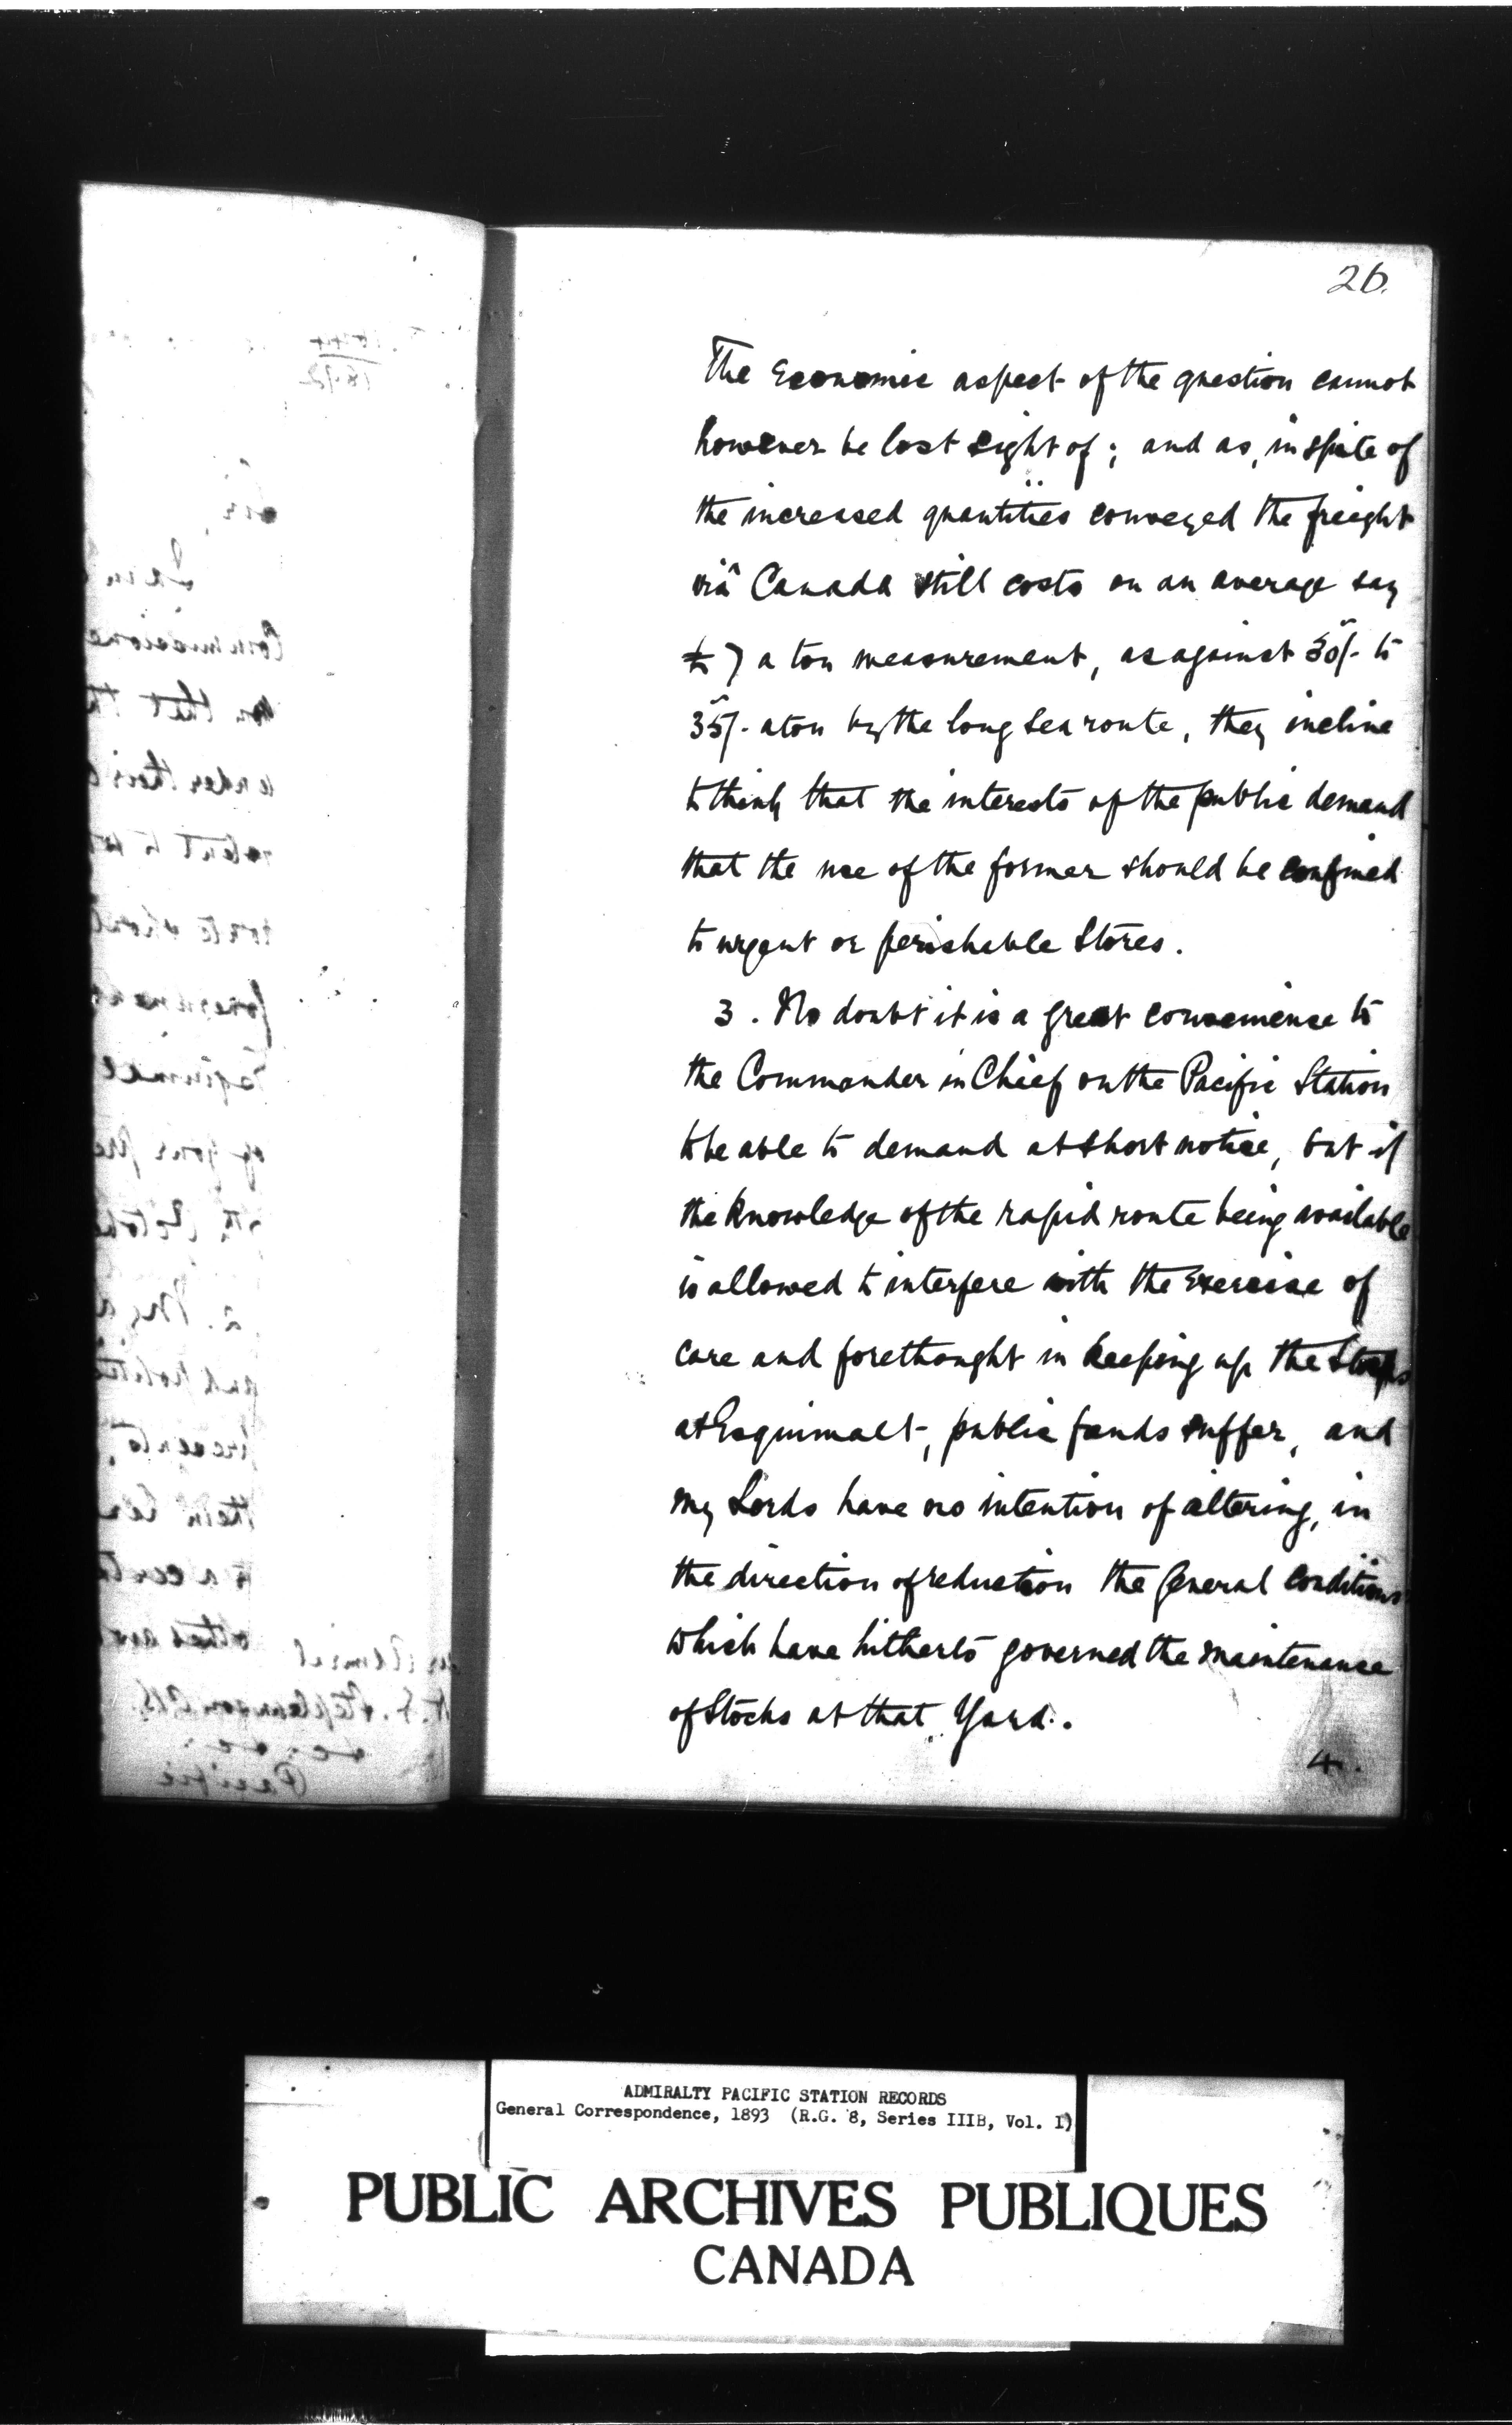 26.
The Economic aspect of the question cannot
however be lost sight of; and as, in spite of
the increased quantities conveyed the freight
viâ Canada still costs on an average say
£7 a ton measurement, as against 30/- to
35/- a ton by the long sea route, they incline
to think that the interests of the public demand
that the use of the former should be confined
to urgent or perishable Stores.
3. No doubt it is a great convenience to
the Commander in Chief on the Pacific Station
to be able to demand at short notice, but if
the knowledge of the rapid route being available
is allowed to interfere with the exercise of
care and forethought in keeping up the Stocks
at Esquimalt, public funds suffer, and
my Lords have no intention of altering, in
the direction of reduction the general conditions
which have hitherto governed the maintenance
of Stocks at that Yard.
4.
ADMIRALTY PACIFIC STATION RECORDS
General Correspondence, 1893 (R.G. 8, Series IIIB, Vol. I)
PUBLIC ARCHIVES PUBLIQUES
CANADA